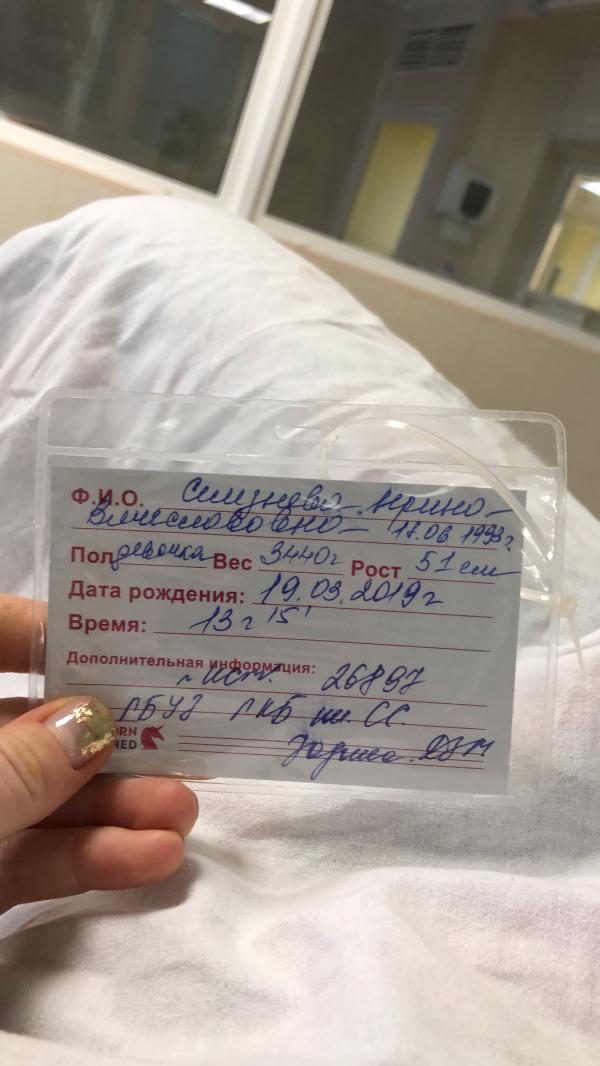 Ф.И.О. Селезнева Арина
Вячеславовна 17.06 1993г.
Пол девочка Вес 3440г Рост 51 см
Дата рождения: 19.03.2019г
Время: 13г 15'
Дополнительная информация:
ист. 26897
ГБУЗ ГКБ им. СС.
Юдина. ДЗМ
ORN
MED